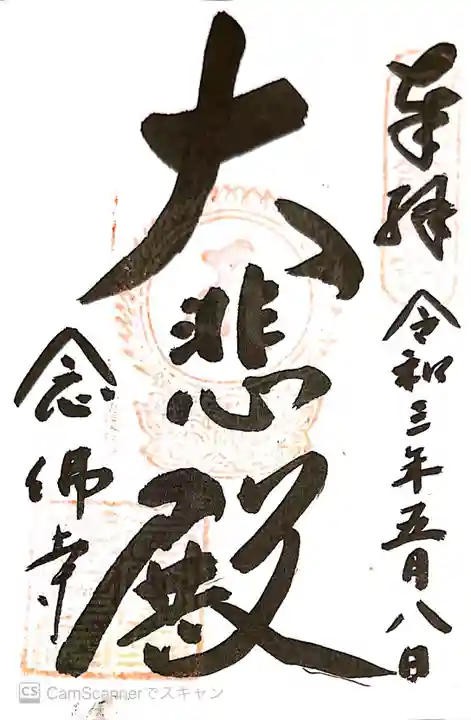 奉拝
令和三年五月八日
大悲殿
念佛寺
CS CamScannerでスキャン